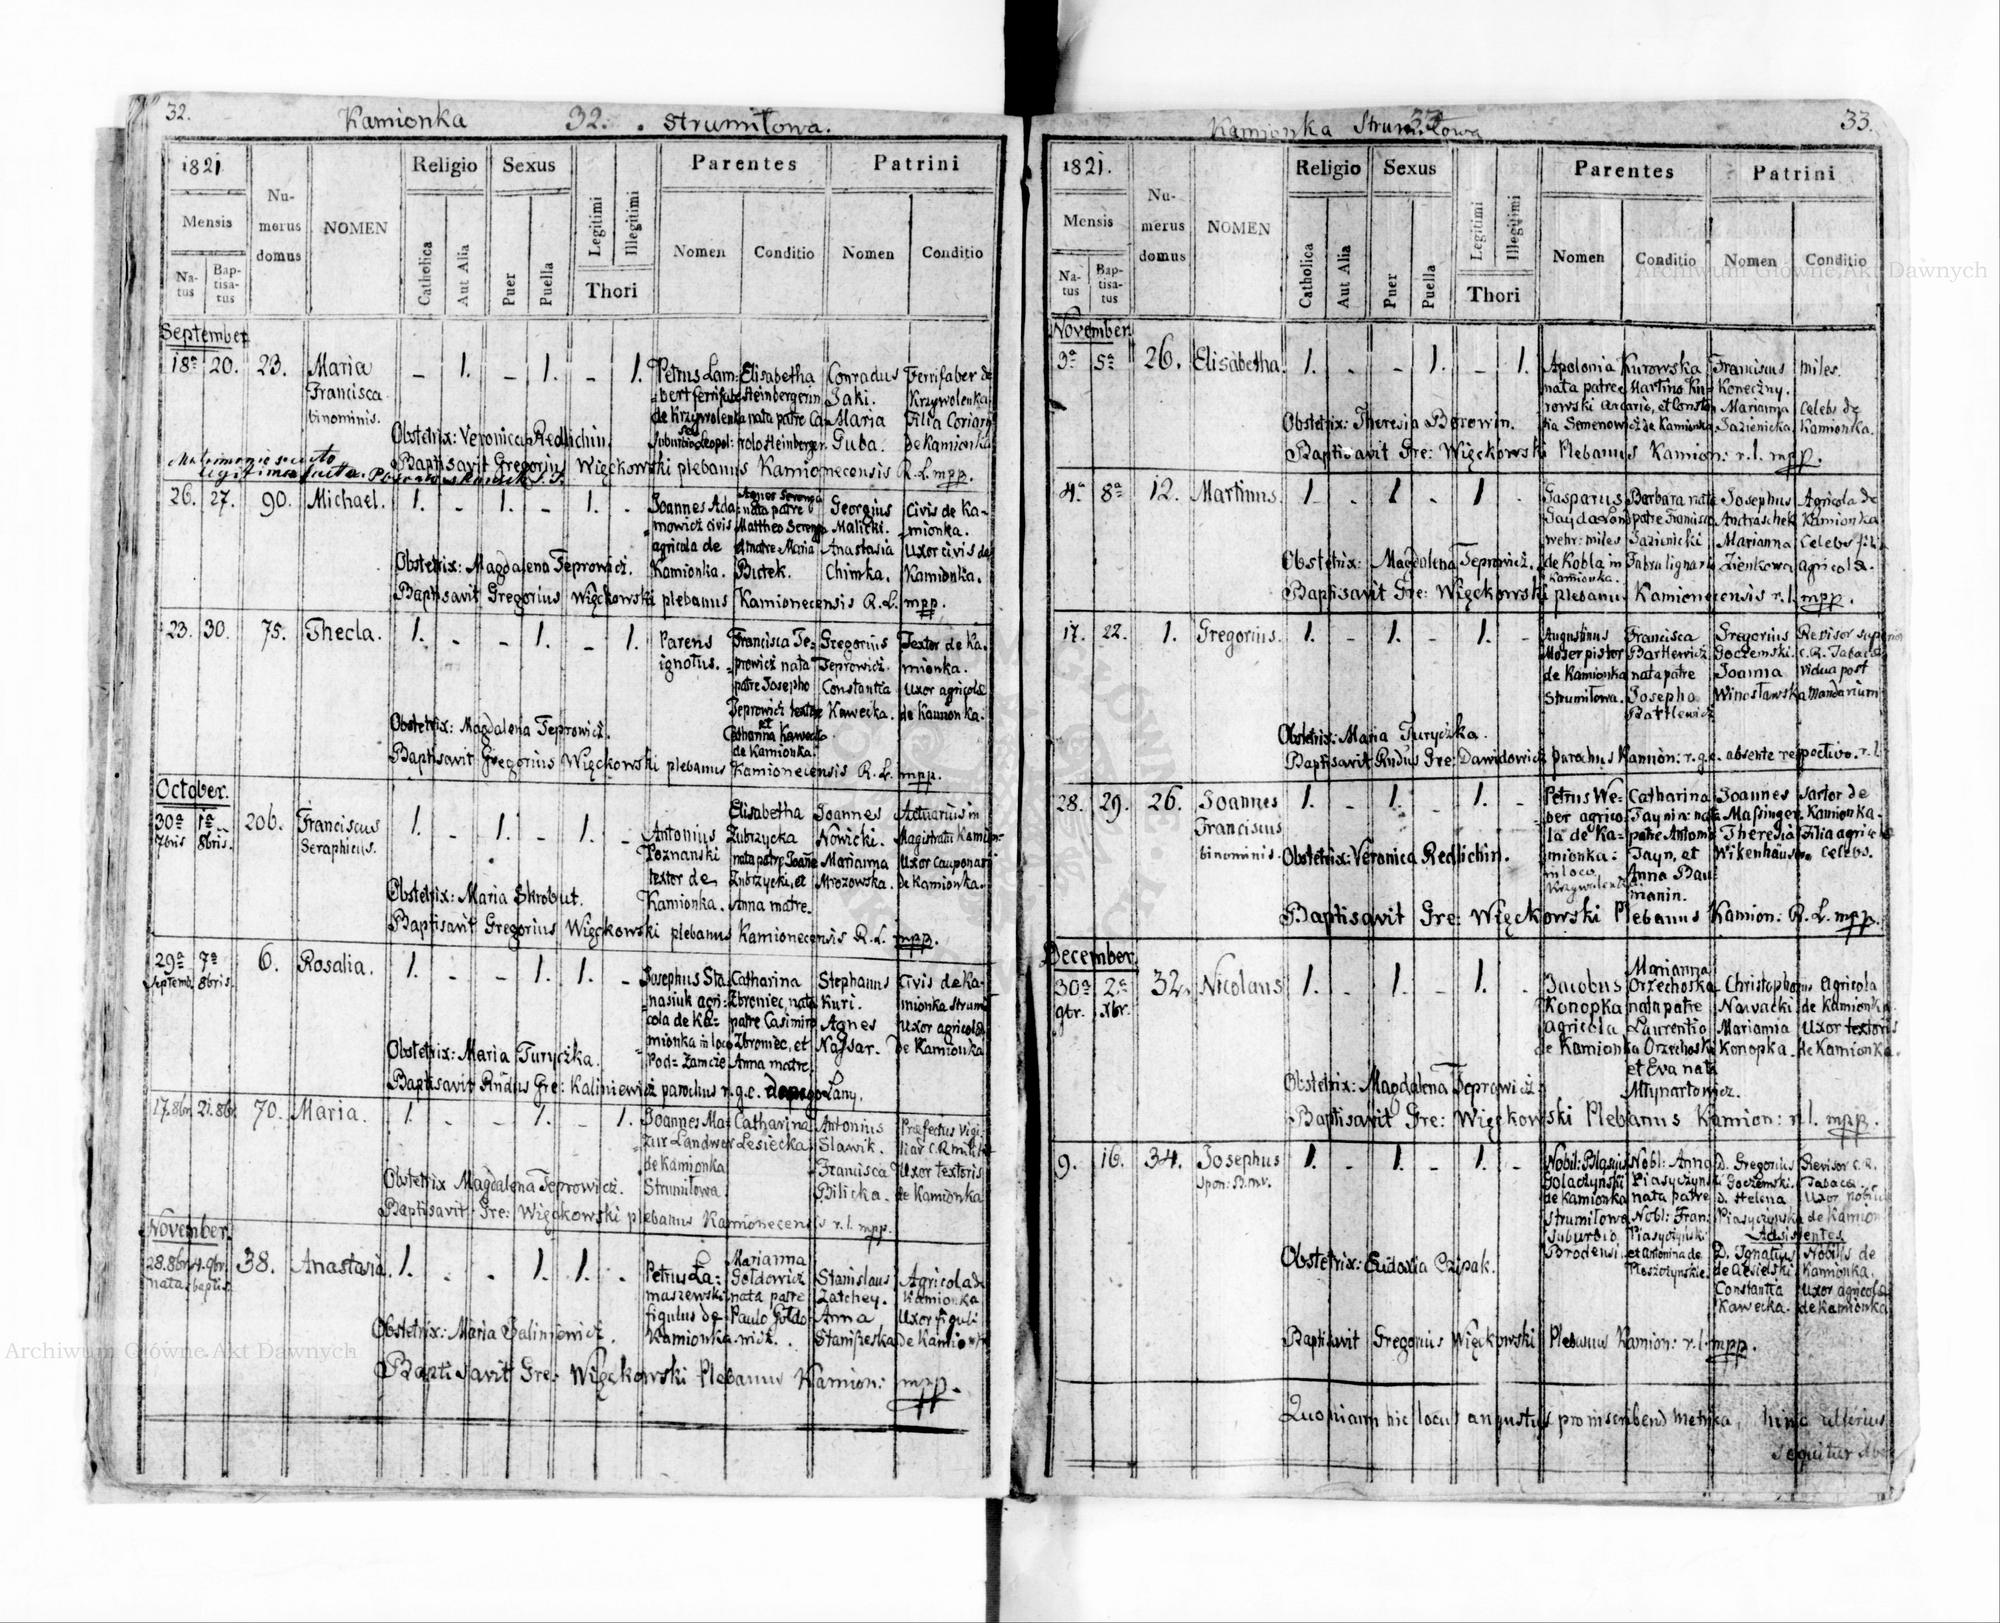 32.
Kamionka 32. Strumiłowa.
1821
Religio Sexus Parentes Patrini
Mensis
Nu-
merus
domus
NOMEN
Catholica
Aut Alia
Puer
Puella
Legitimi
Illegitimi
Thori
Nomen Conditio Nomen Conditio
Na-
tus
Bap-
tisa-
tus
September
18ª 20. 23. Maria - 1. - 1. - 1. Petrus Lam= Elisabetha Conradus Ferrifaber de
Francisca =bert ferrifab Steinbergerin Jaki. Krzywolenka
binominis. de Krzywolenka nata patre Ca= Maria Filia Coriarii
Suburbio Leopol: rolo Steinberger. Guba. de Kamionka
Obstetrix: Veronica Redlichin.
Baptisavit Gregorius Więckowski plebanus Kamionecensis R.L. mpp.
26. 27. 90. Michael. 1. - 1. - 1. - Joannes Ada= Agnes Serenga Georgius Civis de Ka-
mowicz civis nata patre Malicki. mionka.
agricola de Mattheo Serenga Anastasia Uxor civis de
Kamionka. et matre Maria Chimka. Kamionka.
Butek.
Obstetrix: Magdalena Teprowicz.
Baptisavit Gregorius Więckowski plebanus Kamionecensis R.L. mpp.
23. 30. 75. Thecla. 1. - - 1. - 1. Parens Francisca Te= Gregorius Textor de Ka.
ignotus. prowicz nata Teprowicz. mionka.
patre Josepho Constantia Uxor agricolæ
Teprowicz textore Kawecka. de Kamionka.
et
Catharina Kawecka
de Kamionka.
Obstetrix: Magdalena Teprowicz.
Baptisavit Gregorius Więckowski plebanus Kamionecensis R.L. mpp.
October.
30ª 1ª 206. Franciscus 1. - 1. - 1. - Antonius Elisabetha Joannes Actuarius in
7bris 8bris. Seraphicus. Poznanski Zubrzycka Nowicki. Magistratu Kamion:
textor de nata patre Joañe Marianna Uxor cauponarii
Kamionka. Zubrzycki, et Mrozowska. de Kamionka.
Anna matre.
Obstetrix: Maria Skrobut.
Baptisavit Gregorius Więckowski plebanus Kamionecensis R.L. mpp.
29ª 7ª 6. Rosalia. 1. - - 1. 1. - Josephus Sta= Catharina Stephanus Civis de Ka-
Septemb. 8bris. nasiuk agri= Zbroniec, nata Kuri. mionka Strum:
cola de Ka= patre Casimiro Agnes Uxor agricolæ
mionka in loco Zbroniec, et Najsar. de Kamionka
Pod= Zamcze Anna matre.
Obstetrix: Maria Turyczka.
Baptisavit Rndus Gre: Kaliniewicz parochus r.g.c. Łany.
17. 8br. 21. 8br. 70. Maria. 1. - - 1. - 1. Joannes Ma= Catharina Antonius Præfectus Vigi=
zur Landwer Lesiecka Slawik. liar C.R. milit:
de Kamionka Francisca Uxor textoris
Strumiłowa. Bilicka. de Kamionka
Obstetrix Magdalena Teprowicz.
Baptisavit Gre: Więckowski plebanus Kamionecensis r.l. mpp.
November.
28. 8br. 4. 9br. 38. Anastasia. 1. - - 1. 1. - Petrus Ła= Marianna Stanislaus Agricola de
nata baptis. maszewski Gołdowicz Zatchey. Kamionka
figulus de nata patre Anna Uxor figuli
Kamionka. Paulo Gołdo Staniszeska de Kamionka
wicz.
Obstetrix: Maria Salimiewicz.
Baptisavit Gre: Więckowski Plebanus Kamion: mpp.
Kamionka Strumiłowa 33
33.
1821.
Religio Sexus Parentes Patrini
Mensis
Nu-
merus
domus
NOMEN
Catholica
Aut Alia
Puer
Puella
Legitimi
Illegitimi
Thori
Nomen Conditio Nomen Conditio
Na-
tus
Bap-
tisa-
tus
November.
3ª 5ª 26. Elisabetha. 1. - - 1. - 1. Apolonia Kurowska Franciscus Miles.
nata patre Martino Ku= Koneczny.
rowski et Constan Marianna Celebs de
tia Semenowicz de Kamionka Jazienicka. Kamionka.
Obstetrix: Theresia Borowin.
Baptisavit Gre: Więckowski Plebanus Kamion: r.l. mpp.
4ª 8ª 12. Martinus. 1. - 1 - 1 - Gasparus Barbara nata Josephus Agricola de
Gayda Lond patre Francisco Andraschek Kamionka
wehr: miles Jazienicki Marianna Celebs filia
de Kobla in Fabro lignario Zienkowa agricolæ.
Kamionka.
Obstetrix: Magdalena Teprowicz.
Baptisavit Gre: Więckowski plebanus Kamionecensis r.l. mpp.
17. 22. 1. Gregorius. 1. - 1. - 1. - Augustinus Francisca Gregorius Revisor superior
Mozer pistor Bartlewicz Goczemski. C.R. Tabacæ
de Kamionka nata patre Joanna Vidua post
Strumiłowa. Josepho Winosławska Mandatarium
Bartlewicz
Obstetrix: Maria Turyczka.
Baptisavit Rndus Gre: Dawidowicz parochus Kamion: r.g.c. absente respectivo. r.l.
28. 29. 26. Joannes 1. - 1. - 1. - Petrus We= Catharina Joannes Sartor de
Franciscus ber agrico= Jaynin nata Massinger. Kamionka.
binominis. la de Ka= patre Antonio Theresia Filia agricolæ
mionka: Jayn, et Wikenhäuser Celebs.
in loco Anna Bau
Krzywolenka manin.
Obstetrix: Veronica Redlichin.
Baptisavit Gre: Więckowski Plebanus Kamion: R.L. mpp.
December.
30ª 2ª 32. Nicolaus 1. - 1. - 1. - Jacobus Marianna Christophorus Agricola
9br. Xbr. Konopka Orzechoska Nawacki de Kamionka
agricola nata patre Marianna Uxor textoris
de Kamionka Laurentio Konopka de Kamionka.
Orzechoski
et Eva nata
Młynartowicz.
Obstetrix: Magdalena Teprowicz
Baptisavit Gre: Więckowski Plebanus Kamion: r.l. mpp.
9. 16. 34. Josephus 1. - 1. - 1. - Nobil: Blasius Nobl: Anna D. Gregorius Revisor C.R.
Spon: B.m.v. Golaczynski Piasyczynski Goczemski. Tabacæ.
de Kamionka nata patre D. Helena Uxor nobilis
Strumiłowa Nobl: Fran: Piasyczynska de Kamion
Suburbio Piasyczynski Adsistentes
Brodensi. et Antonina de D. Ignatius Nobilis de
Ploszczynskie. de Ciesielski Kamionka.
Constantia Uxor agricolæ
Kawecka. de Kamionka
Obstetrix: Eudoxia Czipak.
Baptisavit Gregorius Więckowski Plebanus Kamion: r.l. mpp.
Quoniam hic locus angustus pro inscribend metrica, hinc ulterius
sequitur
Archiwum Główne Akt Dawnych
Archiwum Główne Akt Dawnych